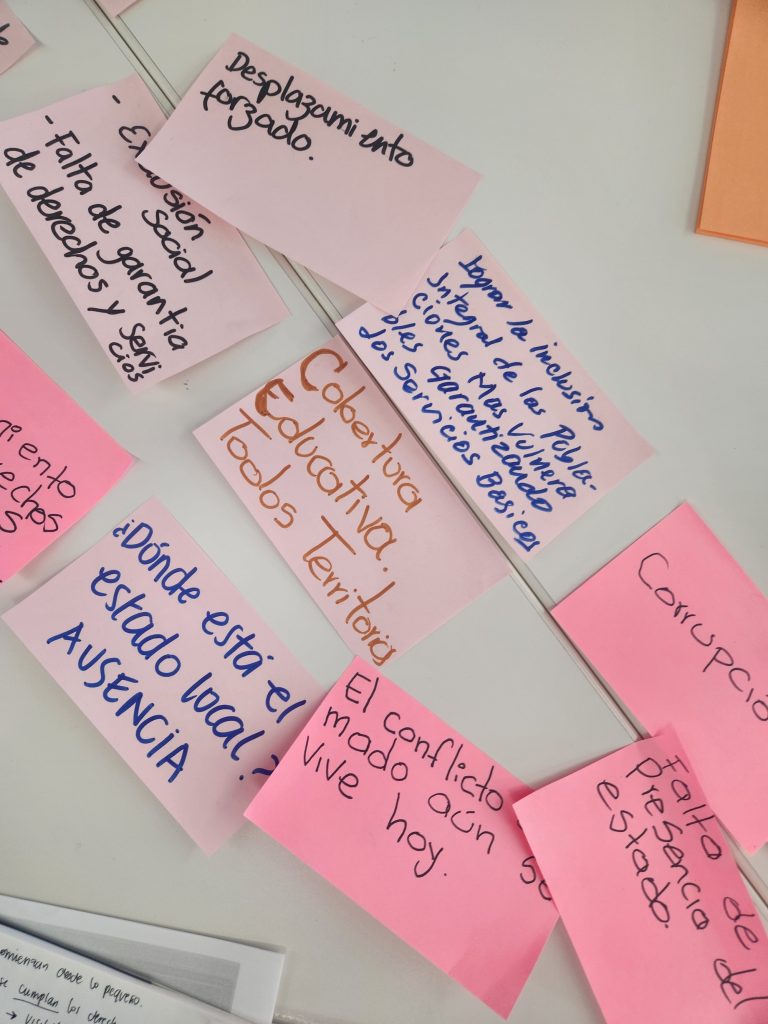 Desplazamiento
forzado.
- Exclusión
Social
- Falta de garantia
de derechos y servi
cios
lograr la inclusion
Integral de las Pobla-
ciones Mas Vulnera
bles garantizando
los Servicios Basicos
Cobertura
Educativa.
Todos Territorios
miento
echos
s
¿Dónde está el
estado local?
AUSENCIA
Corrupció
El conflicto
mado aún se
vive hoy.
Falta de
presencia del
estado.
desde lo pequeño.
se cumplan los derech